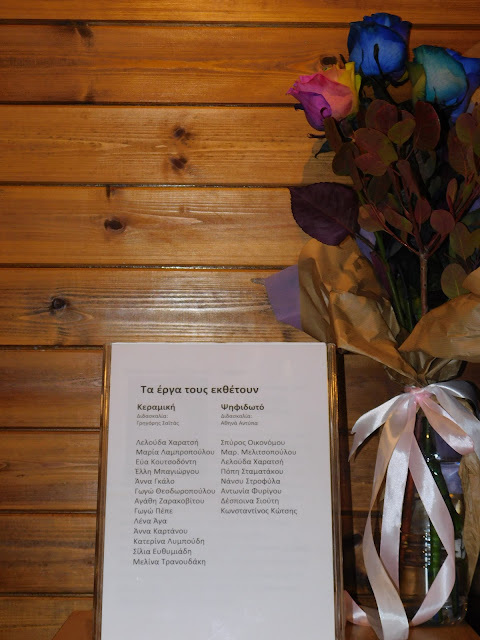 Τα έργα τους εκθέτουν
Κεραμική
Διδασκαλία:
Γρηγόρης Σαϊτάς
Λελούδα Χαρατσή
Μαρία Λαμπροπούλου
Εύα Κουτσοδόντη
Έλλη Μπαγιώργου
Άννα Γκάλο
Γωγώ Θεοδωροπούλου
Αγάθη Ζαρακοβίτου
Γωγώ Πέπε
Λένα Άγα
Άννα Καρτάνου
Κατερίνα Λυμπούδη
Σίλια Ευθυμιάδη
Μελίνα Τρανουδάκη
Ψηφιδωτό
Διδασκαλία:
Αθηνά Αντύπα
Σπύρος Οικονόμου
Μαρ. Μελιτσοπούλου
Λελούδα Χαρατσή
Πόπη Σταματάκου
Νάνσυ Στροφύλα
Αντωνία Φυρίγου
Δέσποινα Σιούτη
Κωνσταντίνος Κώτσης